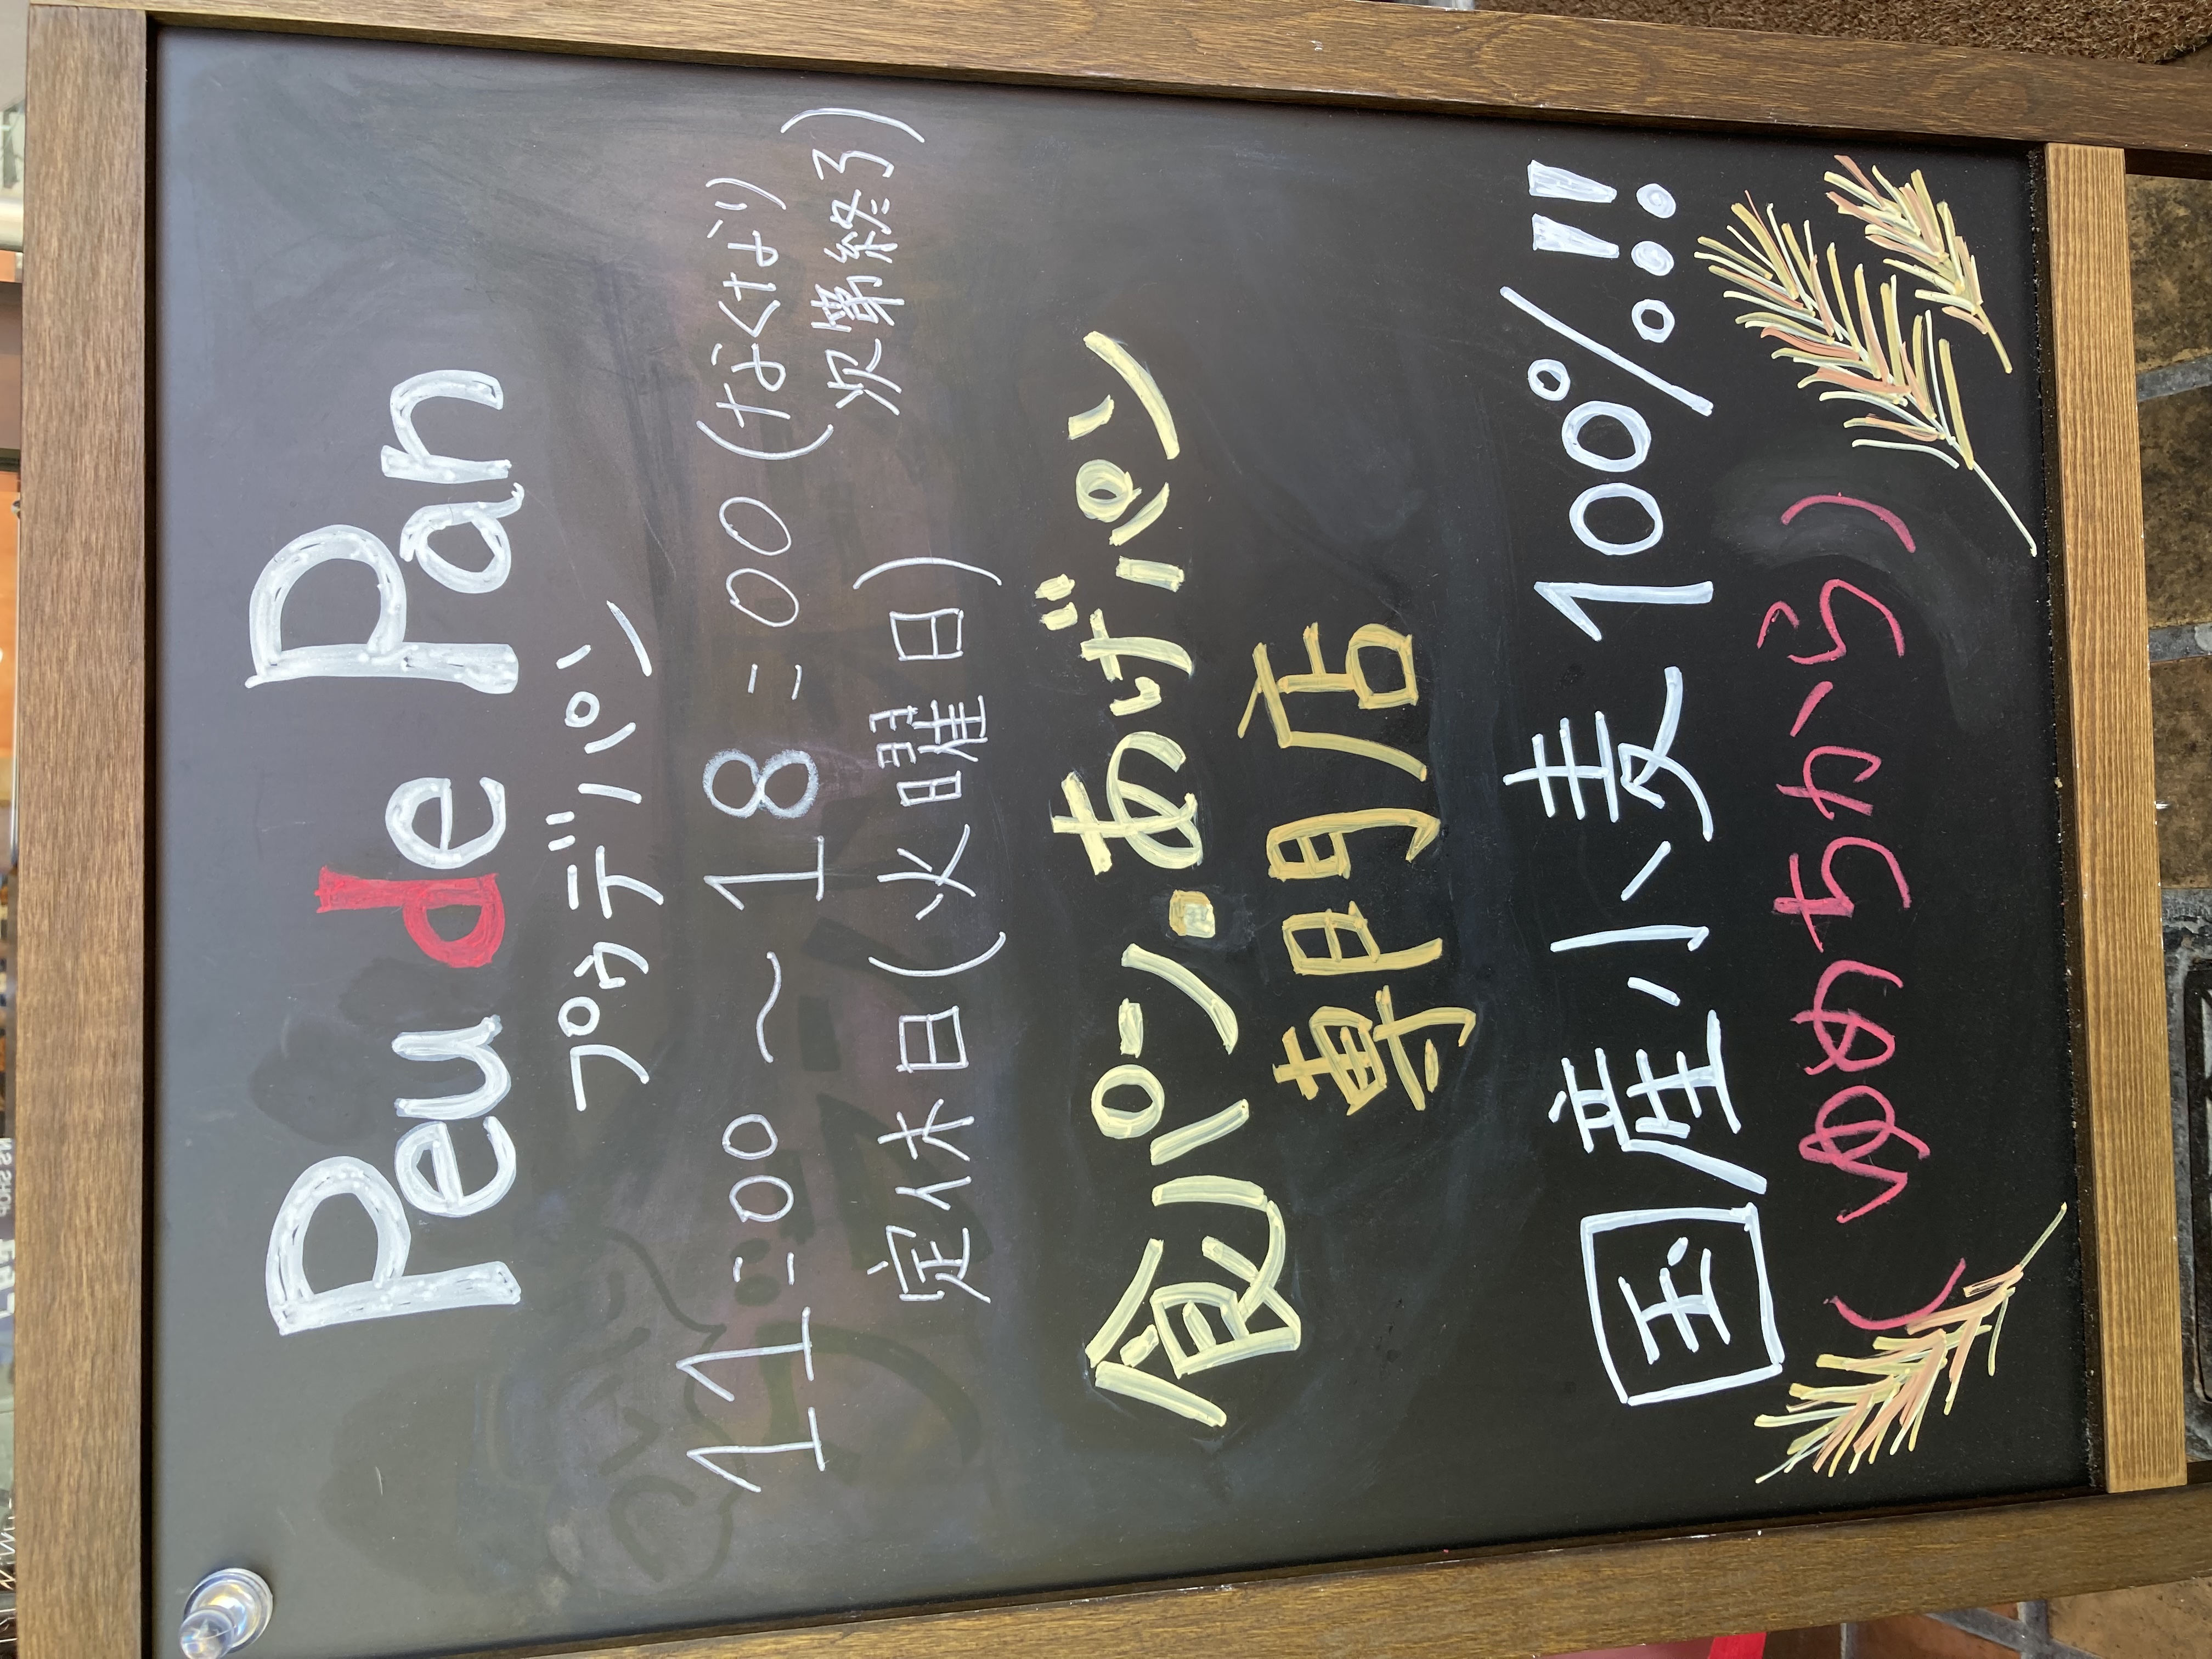 Peu de Pan
プゥデパン
11:00～18:00(なくなり
次第終了)
定休日(火曜日)
食パン・あげパン
専門店
国産小麦100%。!!
(ゆめちから)